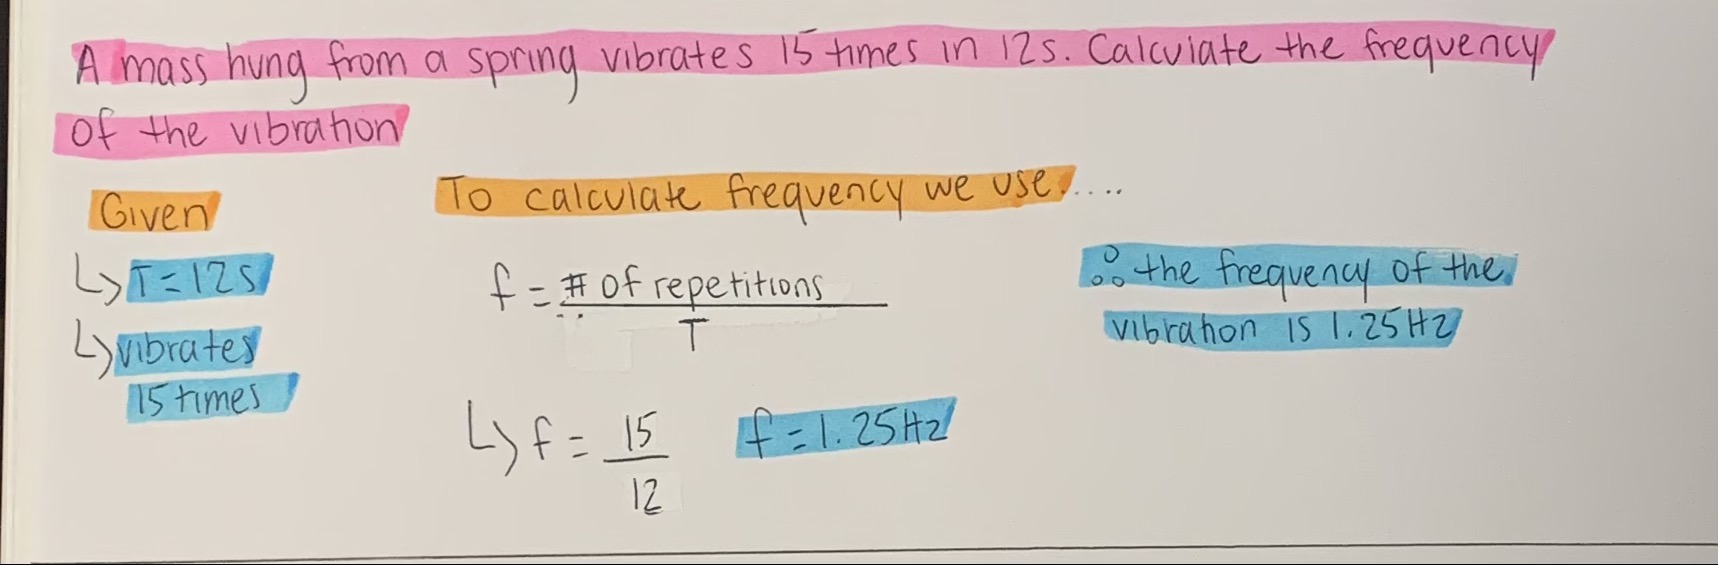 A mass hung from a spring vibrates 15 times in 12s. Calculate the frequency
of the vibration
Given
To calculate frequency we use.....
↳ T=12s
↳ vibrates
15 times
f = # of repetitions
T
↳ f = 15
12
f = 1.25Hz
∴ the frequency of the
vibration is 1.25Hz